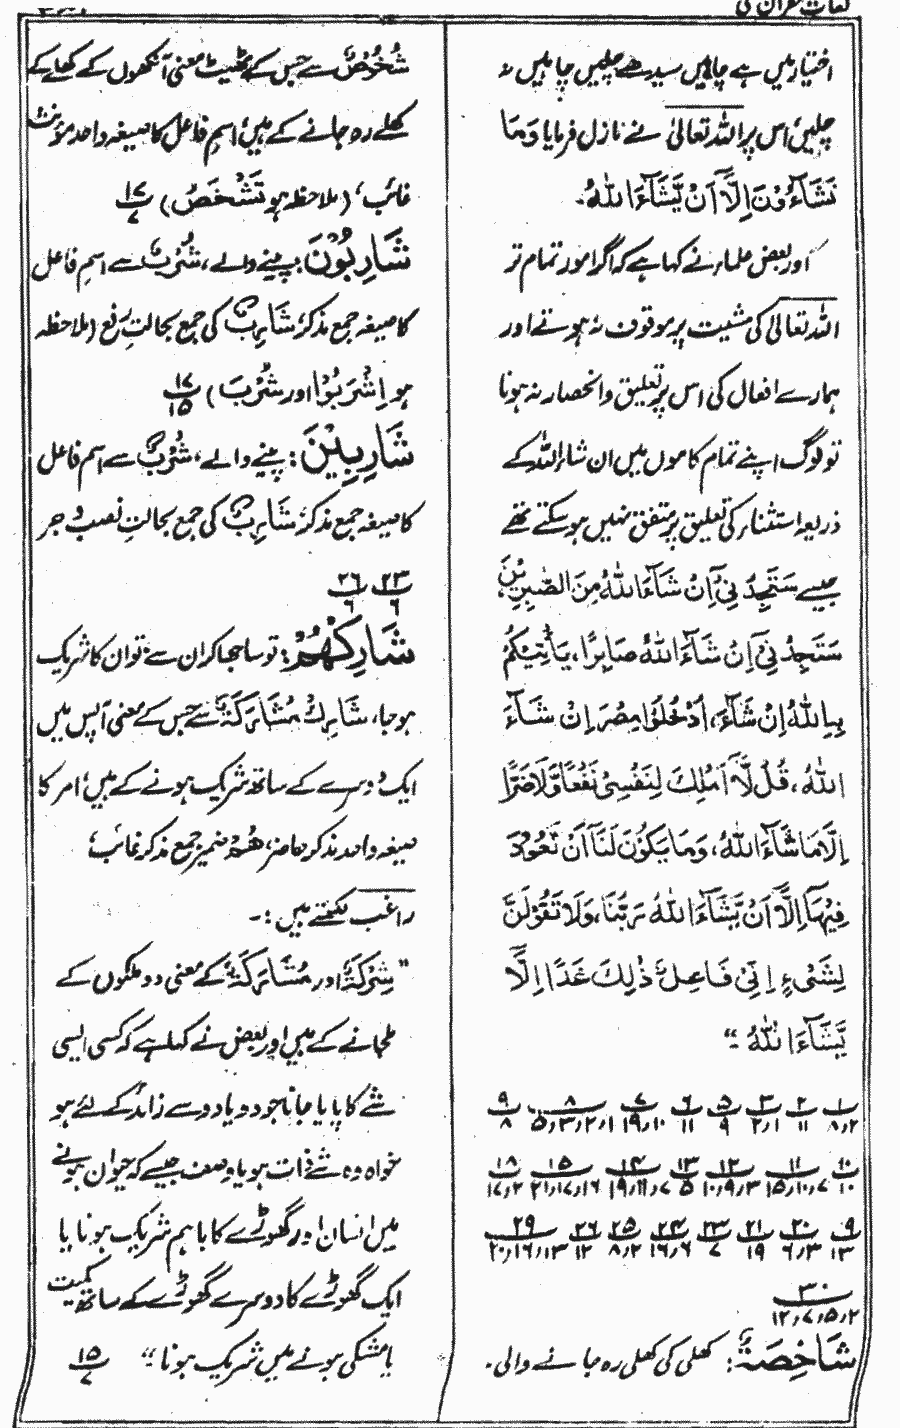 لغات القرآن
اختیار میں ہے چاہیں سیدھے چلیں چاہیں نہ
چلیں، اس پر اللہ تعالیٰ نے نازل فرمایا وَمَا
تَشَآءُوْنَ اِلَّآ اَنْ یَّشَآءَ اللہُ۔
اور بعض علماء نے کہا ہے کہ اگر امور تمام تر
اللہ تعالیٰ کی مشیت پر موقوف نہ ہوتے اور
ہمارے افعال کی اس پر تعلیق و انحصار نہ ہوتا
تو لوگ اپنے تمام کاموں میں ان شاء اللہ کے
ذریعہ استثناء کی تعلیق پر متفق نہیں ہو سکتے تھے
جیسے سَتَجِدُنِیْٓ اِنْ شَآءَ اللہُ مِنَ الصّٰبِرِیْنَ،
سَتَجِدُنِیْٓ اِنْ شَآءَ اللہُ صَابِرًا، یَاْتِیْکُمْ
بِہِ اللہُ اِنْ شَآءَ، اُدْخُلُوْا مِصْرَ اِنْ شَآءَ
اللہُ، قُلْ لَّآ اَمْلِكُ لِنَفْسِیْ نَفْعًا وَّلَا ضَرًّا
اِلَّا مَا شَآءَ اللہُ، وَمَا یَکُوْنُ لَنَآ اَنْ نَّعُوْدَ
فِیْہَآ اِلَّآ اَنْ یَّشَآءَ اللہُ رَبُّنَا، وَلَا تَقُوْلَنَّ
لِشَیْءٍ اِنِّیْ فَاعِلٌ ذٰلِكَ غَدًا اِلَّآ اَنْ
یَّشَآءَ اللہُ ۔“
۱ ۲ ۳ ۵ ۶ ۷ ۸ ۹
۸٫۲ ۱۱ ۲٫۱ ۹ ۱۱ ۱۹٫۱۰ ۵٫۳٫۲٫۱ ۸
۱۰ ۱۱ ۱۲ ۱۳ ۱۴ ۱۵ ۱۸
۱۰ ۱۵٫۱۰٫۷ ۱۰٫۹٫۳ ۵ ۱۹٫۱۱٫۷ ۲۱٫۱۷٫۱۶ ۱۷٫۲
۹ ۲۰ ۲۱ ۲۳ ۲۴ ۲۵ ۲۶ ۲۹
۱۳ ۶٫۳ ۱۹ ۷ ۱۶٫۶ ۸٫۲ ۱۲ ۲۰٫۱۶٫۱۳
۳۰
۱۲٫۷٫۵٫۲
شَاخِصَةٌ: کھلی کی کھلی رہ جانے والی۔
شُخُوْصٌ سے جس کے ٹھیٹ معنی آنکھوں کے کھلے کے
کھلے رہ جانے کے ہیں، اسم فاعل کا صیغہ واحد مؤنث
غائب، (ملاحظہ ہو تَشْخَصُ) ۱۷
۷
شَارِبُوْنَ پینے والے، شُرْبٌ سے اسم فاعل
کا صیغہ جمع مذکر، شَارِبٌ کی جمع بحالتِ رفع (ملاحظہ
ہو اِشْرَبُوْا اور شُرْبَ) ۱۷
۱۵
شَارِبِیْنَ: پینے والے، شُرْبٌ سے اسم فاعل
کا صیغہ جمع مذکر، شَارِبٌ کی جمع بحالتِ نصب و جر
۲۳ ۲۶
۶ ۶
شَارِکْھُمْ: تو ساجھا کر ان سے، تو ان کا شریک
ہوجا، شَارِكْ مُشَارَکَةٌ سے جس کے معنی آپس میں
ایک دوسرے کے ساتھ شریک ہونے کے ہیں، امر کا
صیغہ واحد مذکر حاضر، ھُمْ ضمیر جمع مذکر غائب،
راغب لکھتے ہیں :۔
”شِرْکَةٌ اور مُشَارَکَةٌ کے معنی دو ملکوں کے
ملجانے کے ہیں اور بعض نے کہا ہے کہ کسی ایسی
شے کا پایا جانا جو دو یا دو سے زائد کے لئے ہو
خواہ وہ شے ذات ہو یا وصف جیسے کہ حیوان ہونے
میں انسان اور گھوڑے کا باہم شریک ہونا یا
ایک گھوڑے کا دوسرے گھوڑے کے ساتھ کمیت
یا مشکی ہونے میں شریک ہونا ۔“ ۱۵
۷